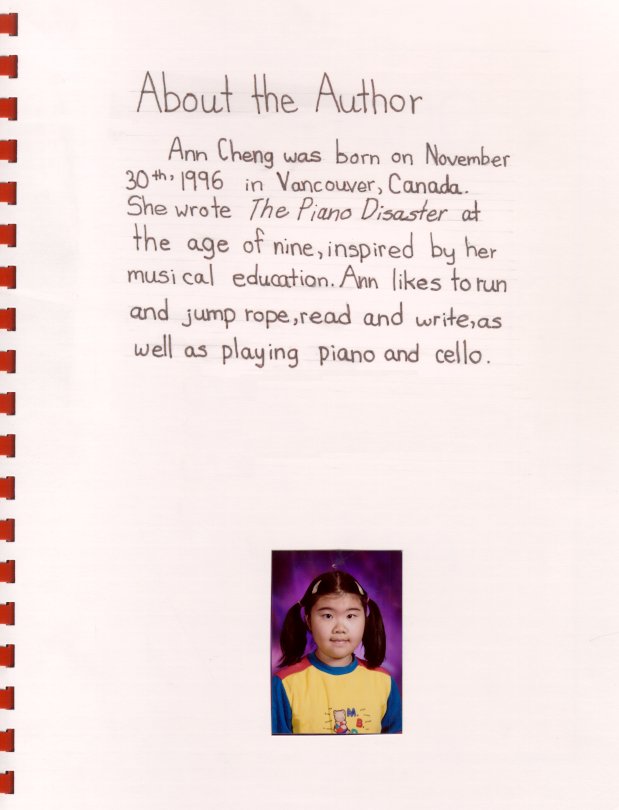 About the Author
Ann Cheng was born on November
30th, 1996 in Vancouver, Canada.
She wrote The Piano Disaster at
the age of nine, inspired by her
musical education. Ann likes to run
and jump rope, read and write, as
well as playing piano and cello.
M.
B.